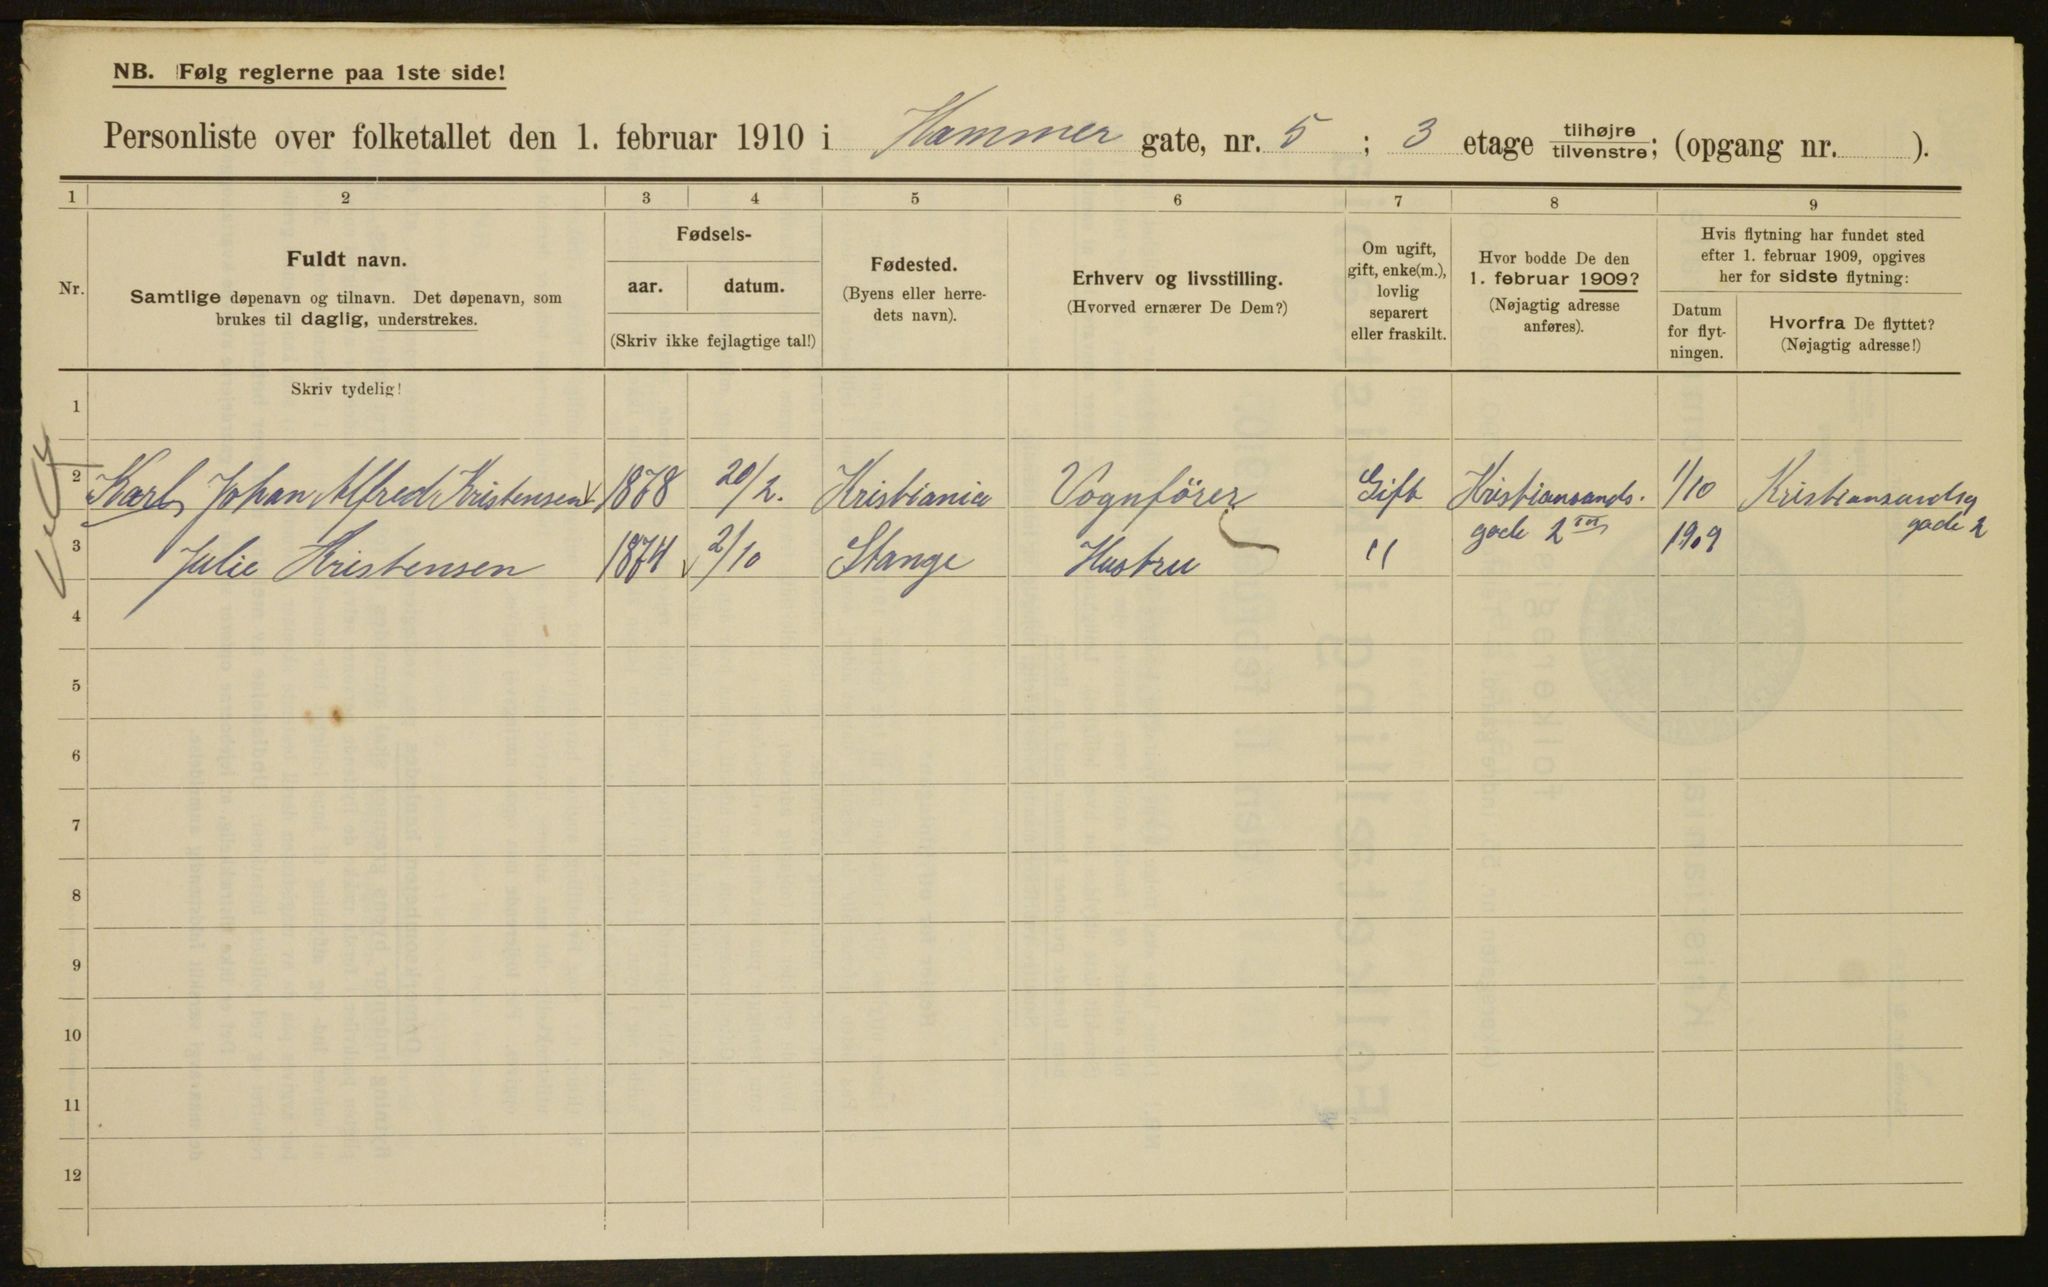 NB. Følg reglerne paa 1ste side!
Personliste over folketallet den 1. februar 1910 i Hammer gate, nr. 5 ; 3 etage tilhøjre/tilvenstre; (opgang nr. ).
1 2 3 4 5 6 7 8 9
Nr.
Fuldt navn.
Samtlige døpenavn og tilnavn. Det døpenavn, som
brukes til daglig, understrekes.
Fødsels-
aar. datum.
(Skriv ikke fejlagtige tal!)
Fødested.
(Byens eller herre-
dets navn).
Erhverv og livsstilling.
(Hvorved ernærer De Dem?)
Om ugift,
gift, enke(m.),
lovlig
separert
eller fraskilt.
Hvor bodde De den
1. februar 1909?
(Nøjagtig adresse
anføres).
Hvis flytning har fundet sted
efter 1. februar 1909, opgives
her for sidste flytning:
Datum
for flyt-
ningen.
Hvorfra De flyttet?
(Nøjagtig adresse!)
Skriv tydelig!
1
2 Karl Johan Alfred Kristensen 1878 20/2. Kristiania Vognfører Gift Kristiansands. 1/10 Kristiansandsg
gade 2 1909 gade 2
3 Julie Kristensen 1874 2/10 Stange Hustru "
4
5
6
7
8
9
10
11
12